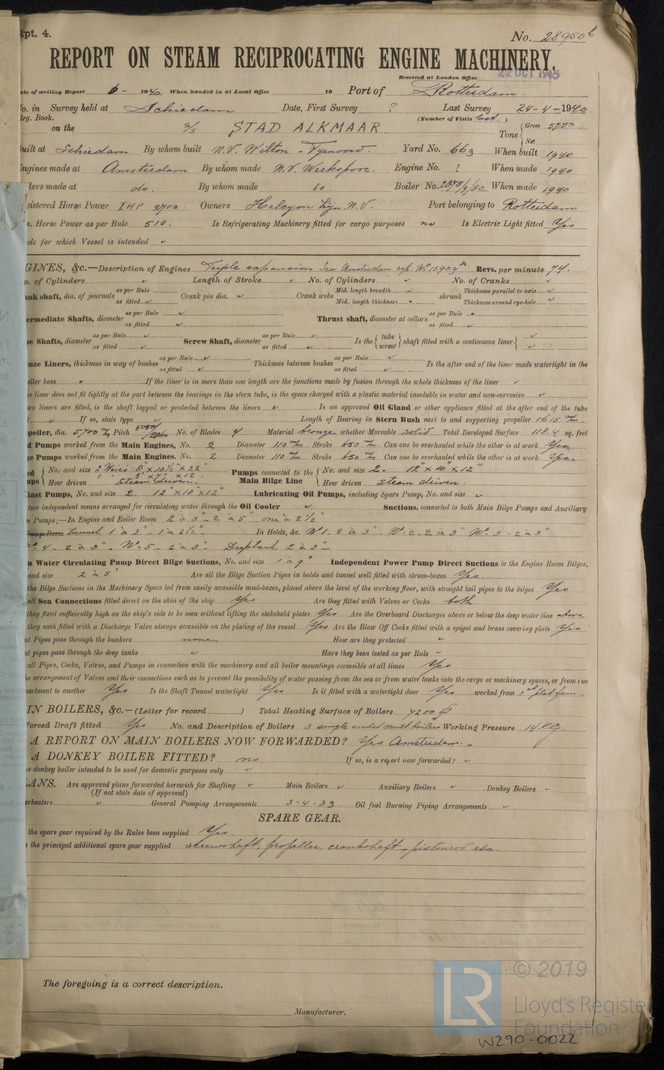 Rpt. 4.
No. 28950b
REPORT ON STEAM RECIPROCATING ENGINE MACHINERY.
Received at London Office 22 OCT 1945
ate of writing Report 6- 1940 When handed in at Local Office 19 Port of Rotterdam
No. in Survey held at Schiedam Date, First Survey ? Last Survey 24-4-1940
Reg. Book. (Number of Visits
on the S/S STAD ALKMAAR Tons Gross Net
uilt at Schiedam By whom built N.V. Wilton-Fyenoord. Yard No. 663 When built 1940
ngines made at Amsterdam By whom made N.V. Werkspoor. Engine No. ? When made 1940
lers made at do. By whom made do Boiler No. When made 1940
gistered Horse Power IHP Owners Halcyon Lijn N.V. Port belonging to Rotterdam
. Horse Power as per Rule 510. Is Refrigerating Machinery fitted for cargo purposes no Is Electric Light fitted Yes
ade for which Vessel is intended
GINES, &c.—Description of Engines Triple expansion See Amsterdam rep. No. Revs. per minute 74.
o. of Cylinders Length of Stroke No. of Cylinders No. of Cranks
nk shaft, dia. of journals as per Rule as fitted Crank pin dia. Crank webs Mid. length breadth Mid. length thickness shrunk Thickness parallel to axis Thickness around eye-hole
ermediate Shafts, diameter as per Rule as fitted Thrust shaft, diameter at collars as per Rule as fitted
e Shafts, diameter as per Rule as fitted Screw Shaft, diameter as per Rule as fitted Is the { tube screw } shaft fitted with a continuous liner {
nze Liners, thickness in way of bushes as per Rule as fitted Thickness between bushes as per Rule as fitted Is the after end of the liner made watertight in the
eller boss If the liner is in more than one length are the junctions made by fusion through the whole thickness of the liner
e liner does not fit tightly at the part between the bearings in the stern tube, is the space charged with a plastic material insoluble in water and non-corrosive
wo liners are fitted, is the shaft lapped or protected between the liners Is an approved Oil Gland or other appliance fitted at the after end of the tube
If so, state type Length of Bearing in Stern Bush next to and supporting propeller
peller, dia. Pitch No. of Blades 4 Material bronze whether Moveable solid Total Developed Surface sq. feet
d Pumps worked from the Main Engines, No. 2 Diameter 110 mm Stroke 650 mm Can one be overhauled while the other is at work Yes
e Pumps worked from the Main Engines, No. 2 Diameter 110 mm Stroke 650 mm Can one be overhauled while the other is at work Yes.
No. and size Pumps connected to the No. and size 2- 12"x10"x12"
How driven Steam driven. Main Bilge Line How driven steam driven.
last Pumps, No. and size 2- 12"x10"x12" Lubricating Oil Pumps, including Spare Pump, No. and size
two independent means arranged for circulating water through the Oil Cooler Suctions, connected to both Main Bilge Pumps and Auxiliary
Pumps;—In Engine and Boiler Room 2 à 3"-2 à 5" one à 2½"
Pump Room Tunnel 1 à 3"-1 à 2½" In Holds, &c. No 1. 2 à 3" No 2. 2 à 3" No 3-2 à 3"
No 4-2 à 3" No 5-2 à 3" Deeptank 2 à 3"-
n Water Circulating Pump Direct Bilge Suctions, No. and size 1 à 9" Independent Power Pump Direct Suctions to the Engine Room Bilges,
and size 2 à 5" Are all the Bilge Suction Pipes in holds and tunnel well fitted with strum-boxes Yes.
the Bilge Suctions in the Machinery Space led from easily accessible mud-boxes, placed above the level of the working floor, with straight tail pipes to the bilges Yes
all Sea Connections fitted direct on the skin of the ship Yes Are they fitted with Valves or Cocks both
they fixed sufficiently high on the ship's side to be seen without lifting the stokehold plates Yes Are the Overboard Discharges above or below the deep water line above
they each fitted with a Discharge Valve always accessible on the plating of the vessel Yes Are the Blow Off Cocks fitted with a spigot and brass covering plate Yes
at Pipes pass through the bunkers none. How are they protected
t pipes pass through the deep tanks Have they been tested as per Rule
all Pipes, Cocks, Valves, and Pumps in connection with the machinery and all boiler mountings accessible at all times Yes
he arrangement of Valves and their connections such as to prevent the possibility of water passing from the sea or from water tanks into the cargo or machinery spaces, or from one
partment to another Yes Is the Shaft Tunnel watertight Yes Is it fitted with a watertight door Yes worked from platform.
IN BOILERS, &c.—(Letter for record ) Total Heating Surface of Boilers
Forced Draft fitted Yes No. and Description of Boilers 3 single ended mult boilers Working Pressure 14 KG
A REPORT ON MAIN BOILERS NOW FORWARDED? Yes Amsterdam.
A DONKEY BOILER FITTED? no If so, is a report now forwarded?
e donkey boiler intended to be used for domestic purposes only
LANS. Are approved plans forwarded herewith for Shafting Main Boilers Auxiliary Boilers Donkey Boilers
(If not state date of approval)
erheaters General Pumping Arrangements 3-4-39 Oil fuel Burning Piping Arrangements
SPARE GEAR.
the spare gear required by the Rules been supplied Yes.
the principal additional spare gear supplied screwshaft, propeller, crankshaft, pistonrod etc
The foregoing is a correct description.
Manufacturer.
LR © 2019
Lloyd's Register
Foundation
W290-0022